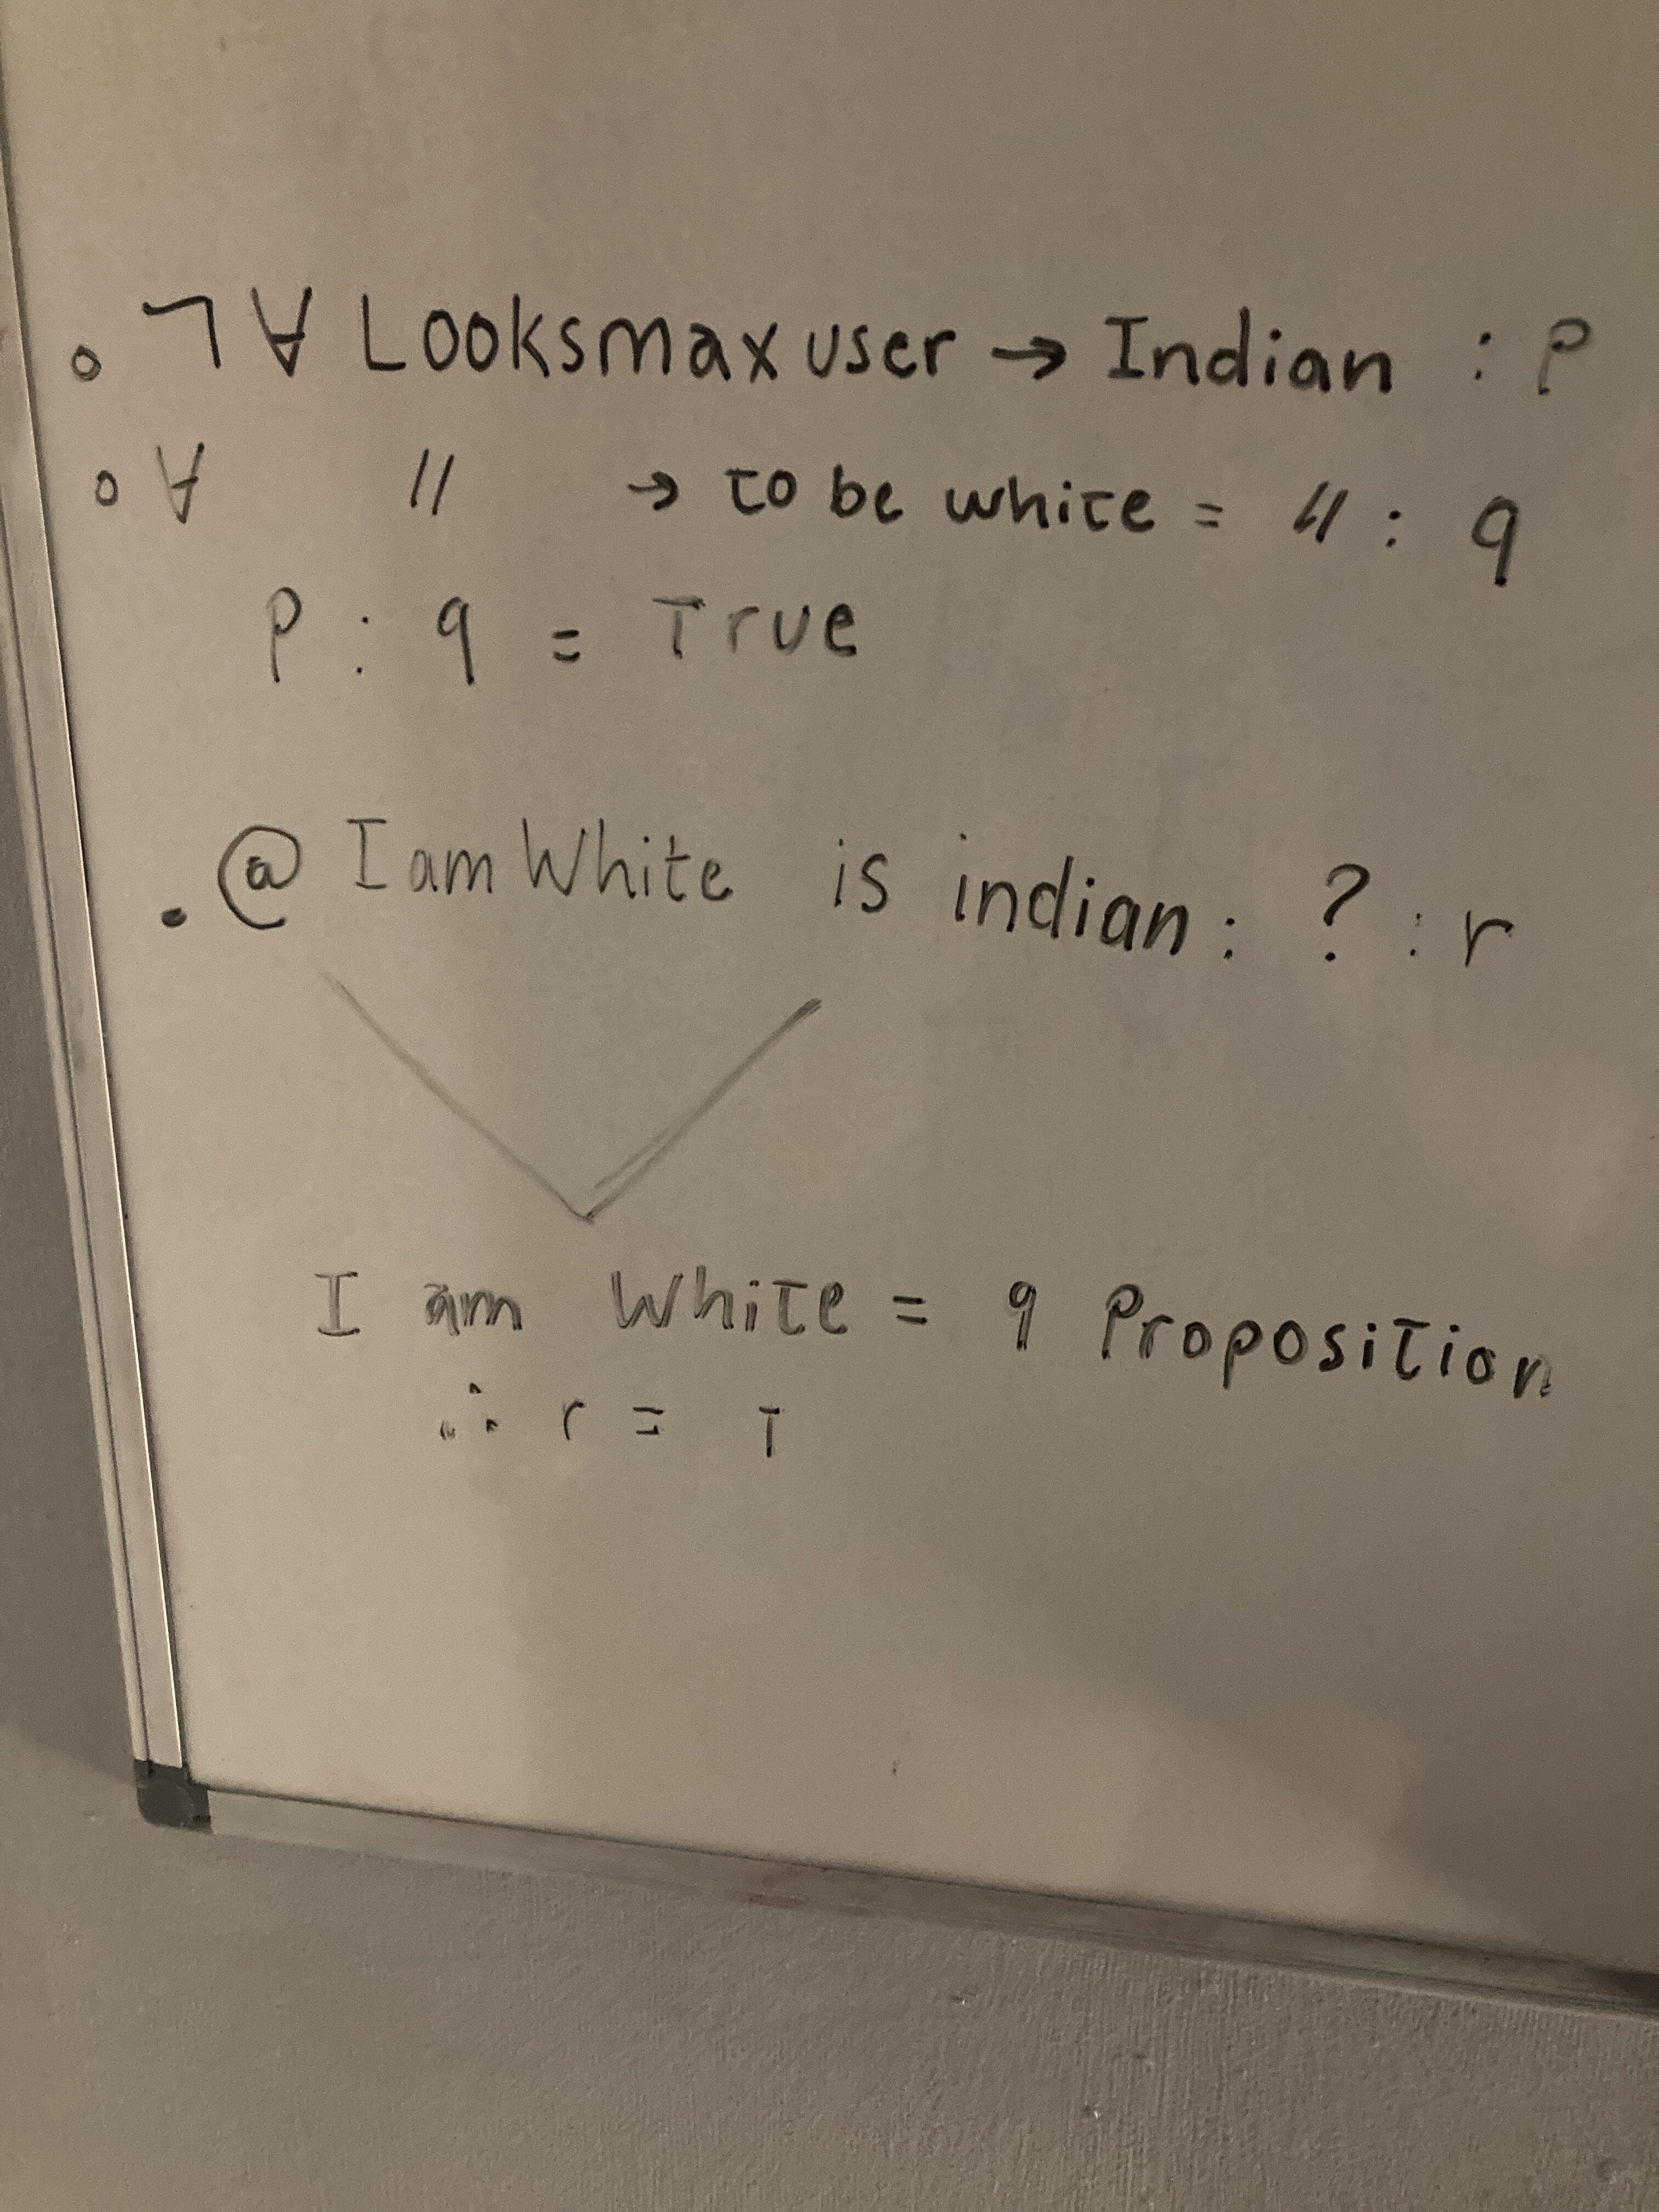 ∘ ¬ ∀ Looksmax user → Indian : P
∘ ∀〃 → to be white = 〃 : q
P : q = True
. @IamWhite is indian : ? : r
I am White = q Proposition
∴ r = T